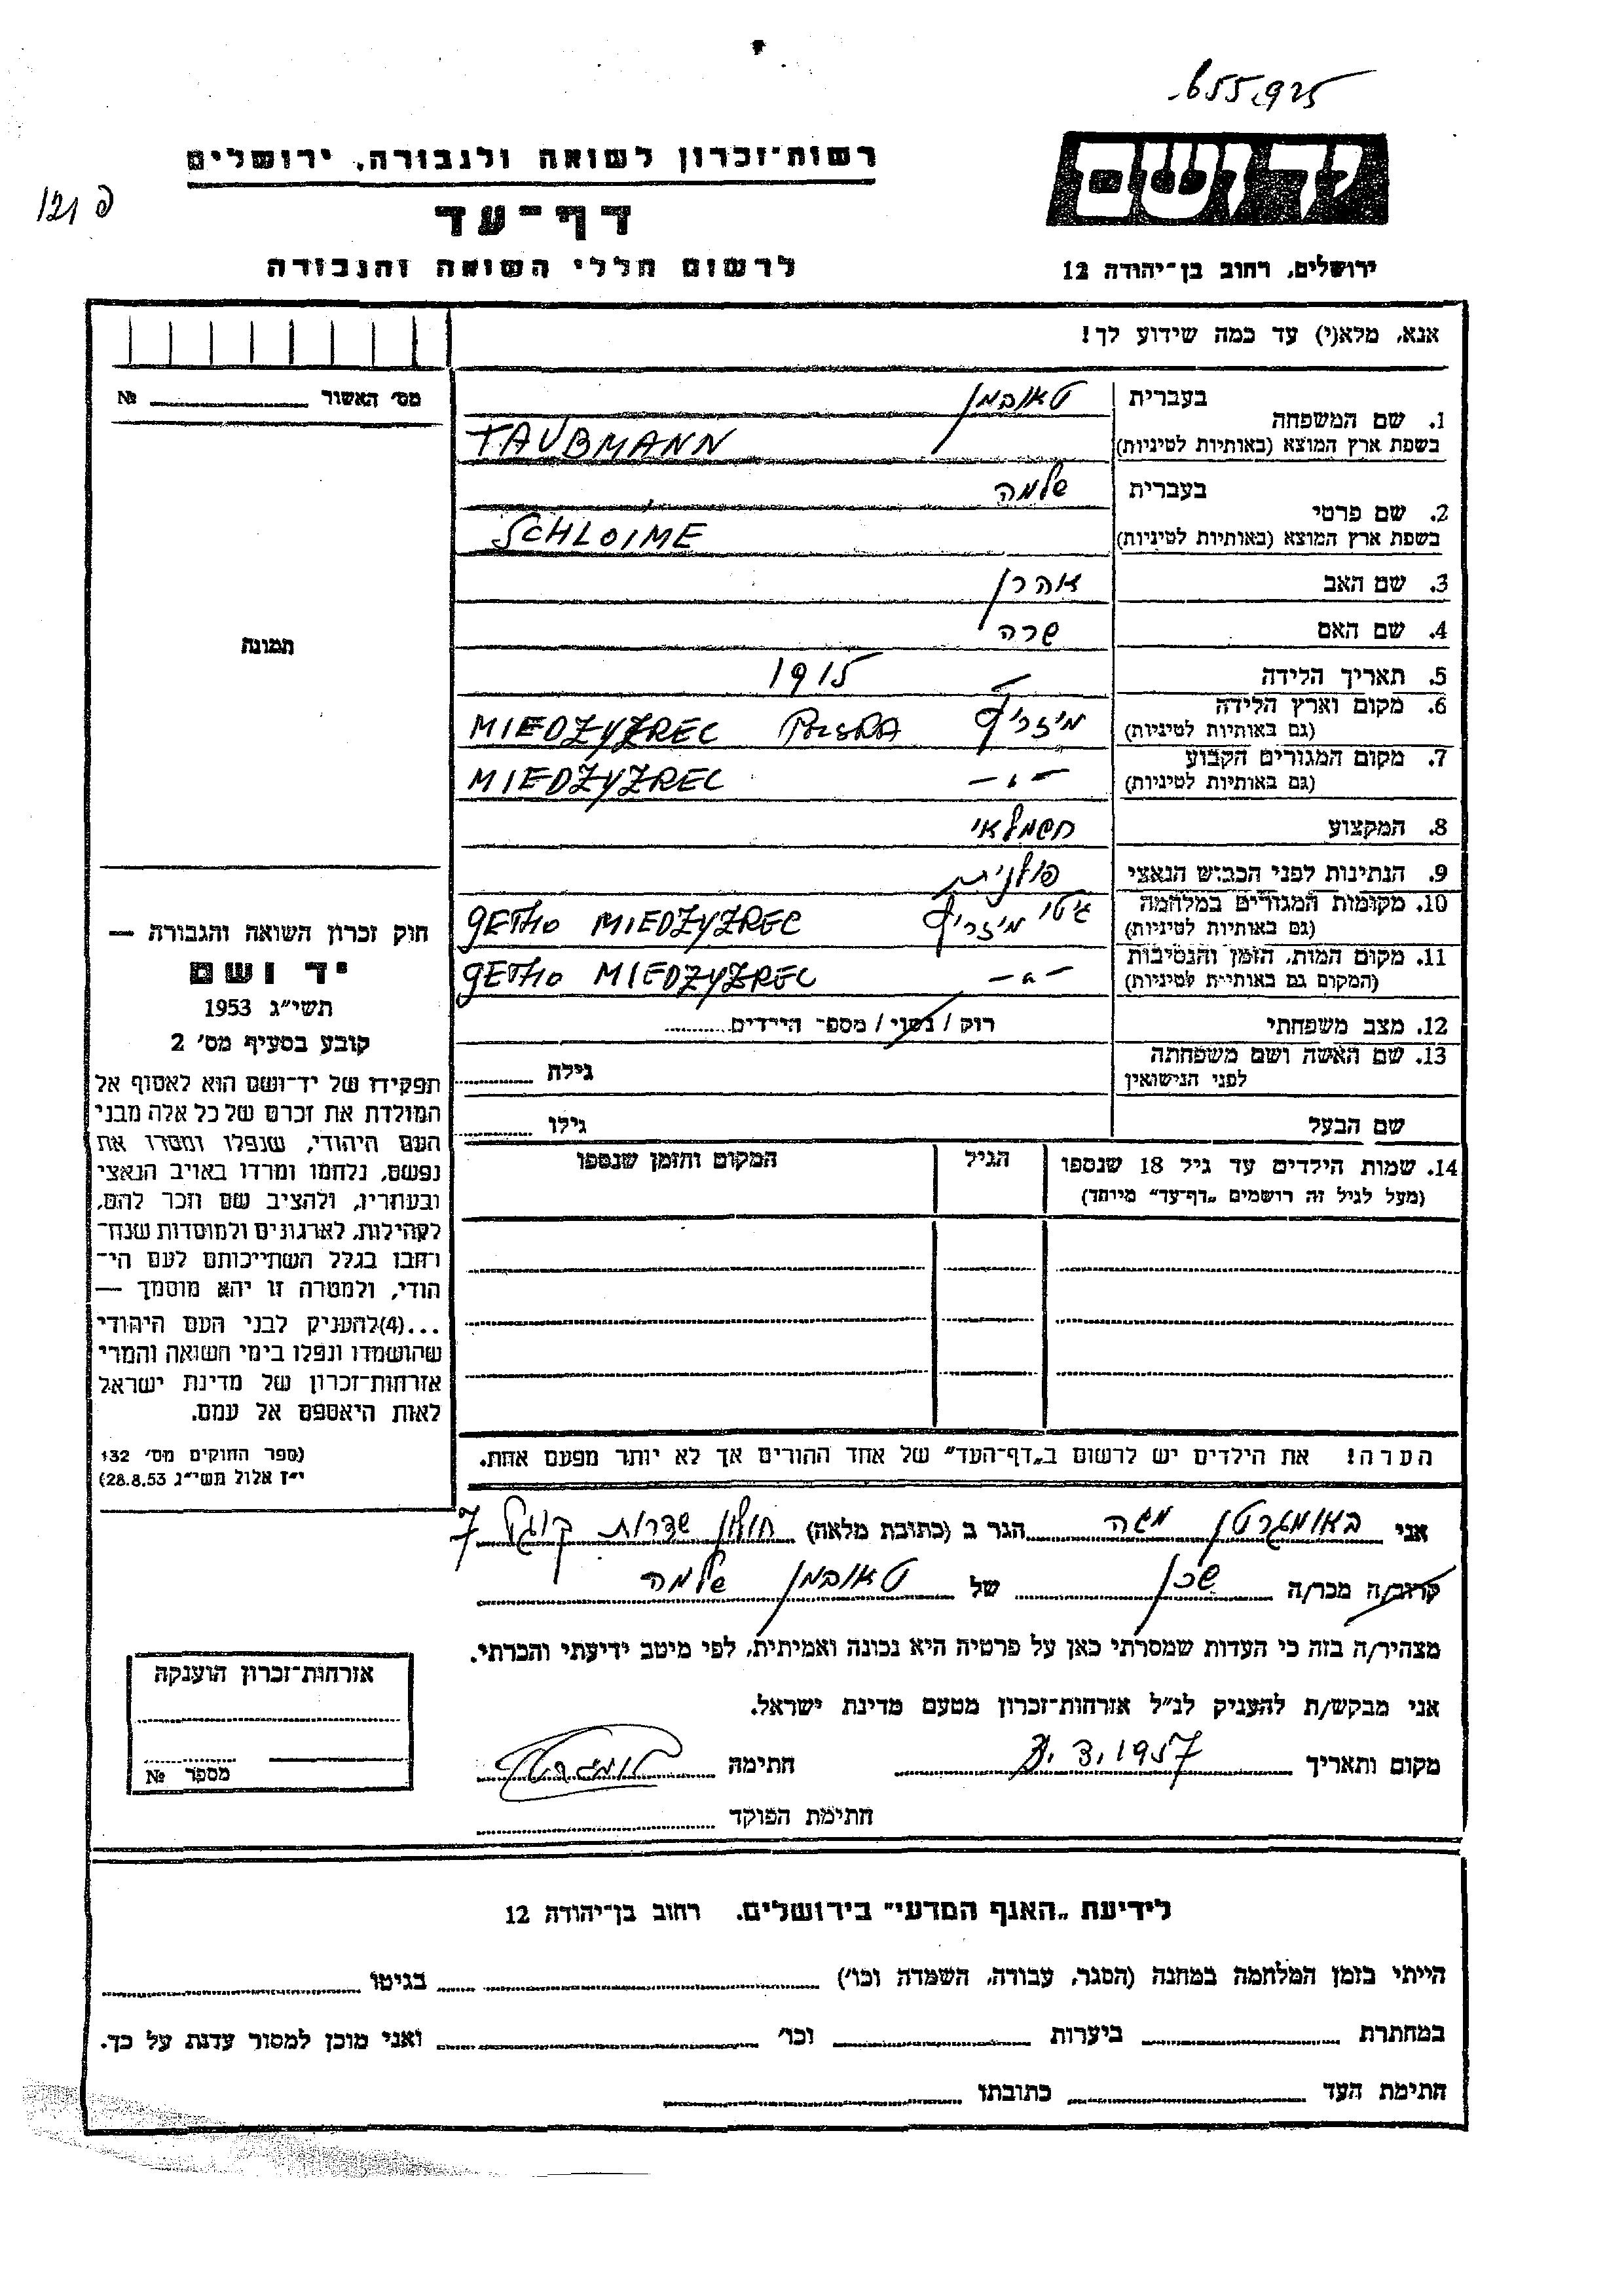 655,925
יד ושם
רשות־זכרון לשואה ולגבורה, ירושלים
פ 121
דף־עד
לרשום חללי השואה והגבורה
ירושלים, רחוב בן־יהודה 12
אנא, מלא(י) עד כמה שידוע לך!
מס׳ האשור № 
תמונה
1. שם המשפחה
בעברית טאובמן
בשפת ארץ המוצא (באותיות לטיניות) TAUBMANN
2. שם פרטי
בעברית שלמה
בשפת ארץ המוצא (באותיות לטיניות) SCHLOIME
3. שם האב אהרן
4. שם האם שרה
5. תאריך הלידה 1915
6. מקום וארץ הלידה מיזריץ MIEDZYZREC POLSKA
(גם באותיות לטיניות)
7. מקום המגורים הקבוע —„— MIEDZYZREC
(גם באותיות לטיניות)
8. המקצוע חשמלאי
9. הנתינות לפני הכבוש הנאצי פולנית
10. מקומות המגורים במלחמה גיטו מיזריץ GETHO MIEDZYZREC
(גם באותיות לטיניות)
11. מקום המות, הזמן והנסיבות —„— GETHO MIEDZYZREC
(המקום גם באותיות לטיניות)
12. מצב משפחתי רוק / נשוי / מספר הילדים
13. שם האשה ושם משפחתה גילה
לפני הנישואין
שם הבעל גילו
14. שמות הילדים עד גיל 18 שנספו הגיל המקום והזמן שנספו
(מעל לגיל זה רושמים „דף־עד״ מיוחד)
הערה! את הילדים יש לרשום ב„דף־העד״ של אחד ההורים אך לא יותר מפעם אחת.
חוק זכרון השואה והגבורה —
יד ושם
תשי״ג 1953
קובע בסעיף מס׳ 2
תפקידו של יד־ושם הוא לאסוף אל
המולדת את זכרם של כל אלה מבני
העם היהודי, שנפלו ומסרו את
נפשם, נלחמו ומרדו באויב הנאצי
ובעוזריו, ולהציב שם וזכר להם,
לקהילות, לארגונים ולמוסדות שנח־
רבו בגלל השתייכותם לעם הי־
הודי, ולמטרה זו יהא מוסמך —
...(4)להעניק לבני העם היהודי
שהושמדו ונפלו בימי השואה והמרי
אזרחות־זכרון של מדינת ישראל
לאות היאספם אל עמם.
(ספר החוקים מס׳ 132
י״ז אלול תשי״ג 28.8.53)
אני באומגרטן משה הגר ב (כתובת מלאה) חולון שדרות קוגל 7
קרוב/ה מכר/ה שכן של טאובמן שלמה
מצהיר/ה בזה כי העדות שמסרתי כאן על פרטיה היא נכונה ואמיתית, לפי מיטב ידיעתי והכרתי.
אני מבקש/ת להעניק לנ״ל אזרחות־זכרון מטעם מדינת ישראל.
מקום ותאריך 1957 חתימה
חתימת הפוקד
אזרחות־זכרון הוענקה
מספר №
לידיעת „האגף המדעי״ בירושלים. רחוב בן־יהודה 12
הייתי בזמן המלחמה במחנה (הסגר, עבודה, השמדה וכו׳) בגיטו
במחתרת ביערות וכו׳ ואני מוכן למסור עדות על כך.
חתימת העד כתובתו